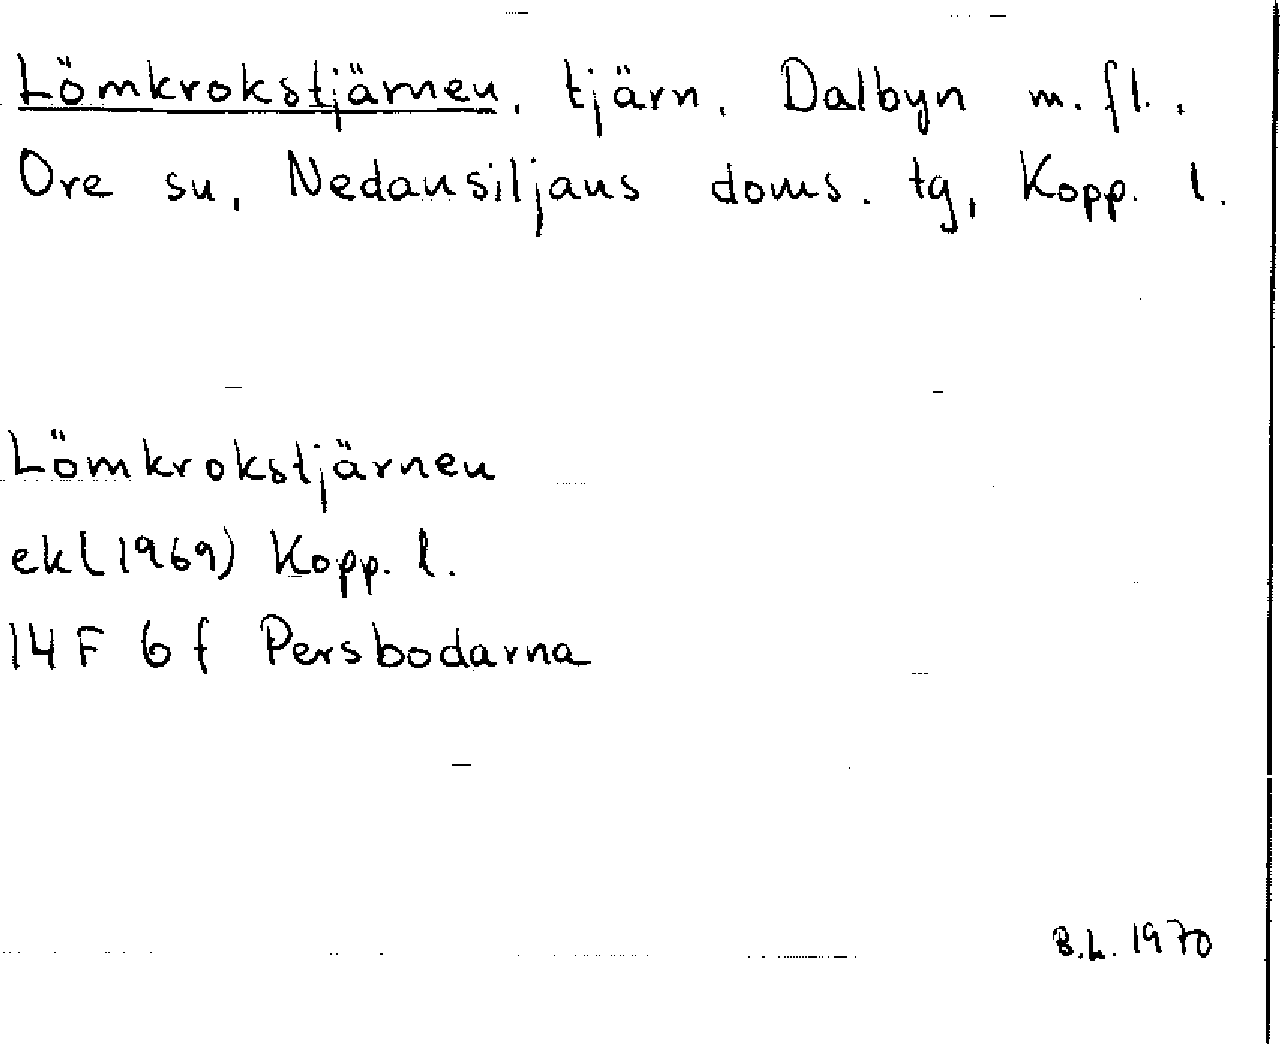 Lömkrokstjärnen, tjärn, Dalbyn m.fl.,
Ore sn, Nedansiljans doms. tg, Kopp. l.
Lömkrokstjärnen
ek (1969) Kopp. l.
14 F 6 f Persbodarna
B.L. 1970